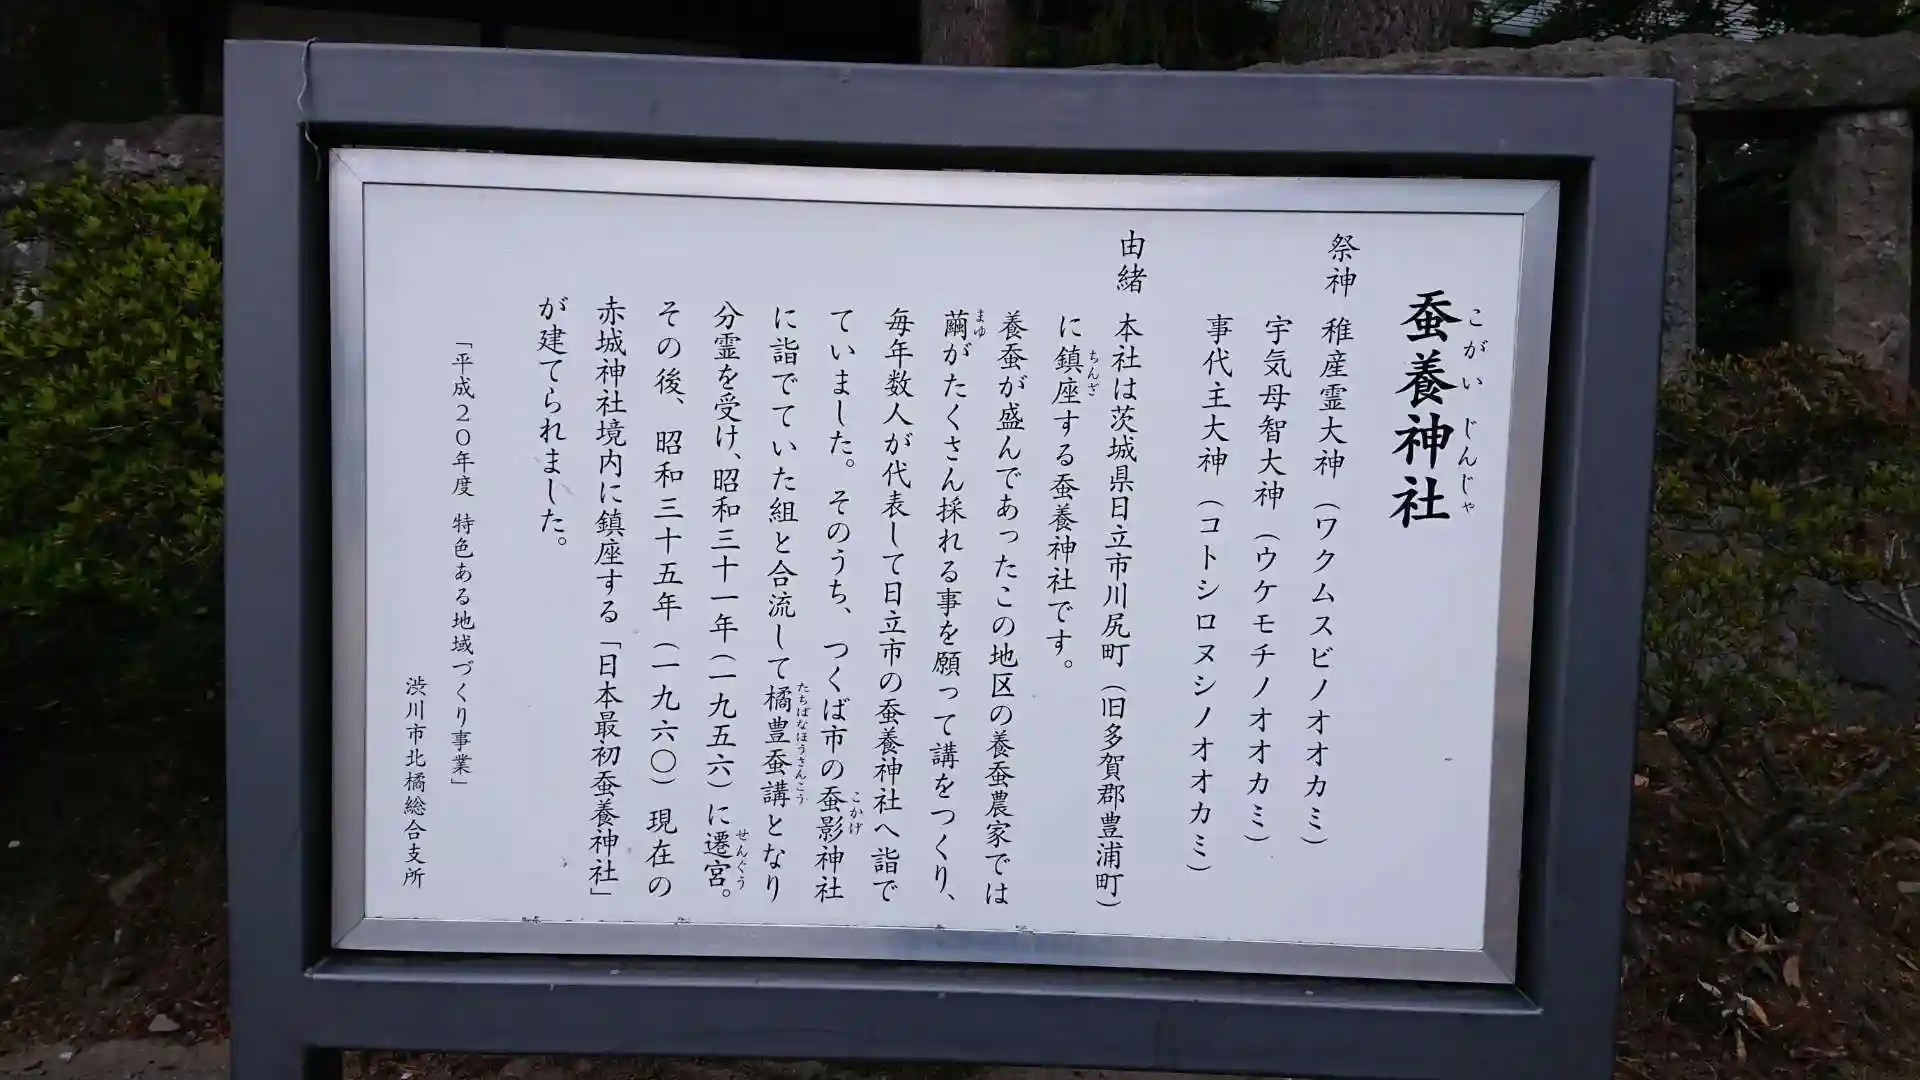 蚕養神社
こがいじんじゃ
祭神 稚産霊大神(ワクムスビノオオカミ)
宇気母智大神(ウケモチノオオカミ)
事代主大神(コトシロヌシノオオカミ)
由緒 本社は茨城県日立市川尻町(旧多賀郡豊浦町)
に鎮座する蚕養神社です。
ちんざ
養蚕が盛んであったこの地区の養蚕農家では
繭がたくさん採れる事を願って講をつくり、
まゆ
毎年数人が代表して日立市の蚕養神社へ詣で
ていました。そのうち、つくば市の蚕影神社
こかげ
に詣でていた組と合流して橘豊蚕講となり
たちばなほうさんこう
分霊を受け、昭和三十一年(一九五六)に遷宮。
せんぐう
その後、昭和三十五年(一九六〇)現在の
赤城神社境内に鎮座する「日本最初蚕養神社」
が建てられました。
「平成20年度 特色ある地域づくり事業」
渋川市北橘総合支所